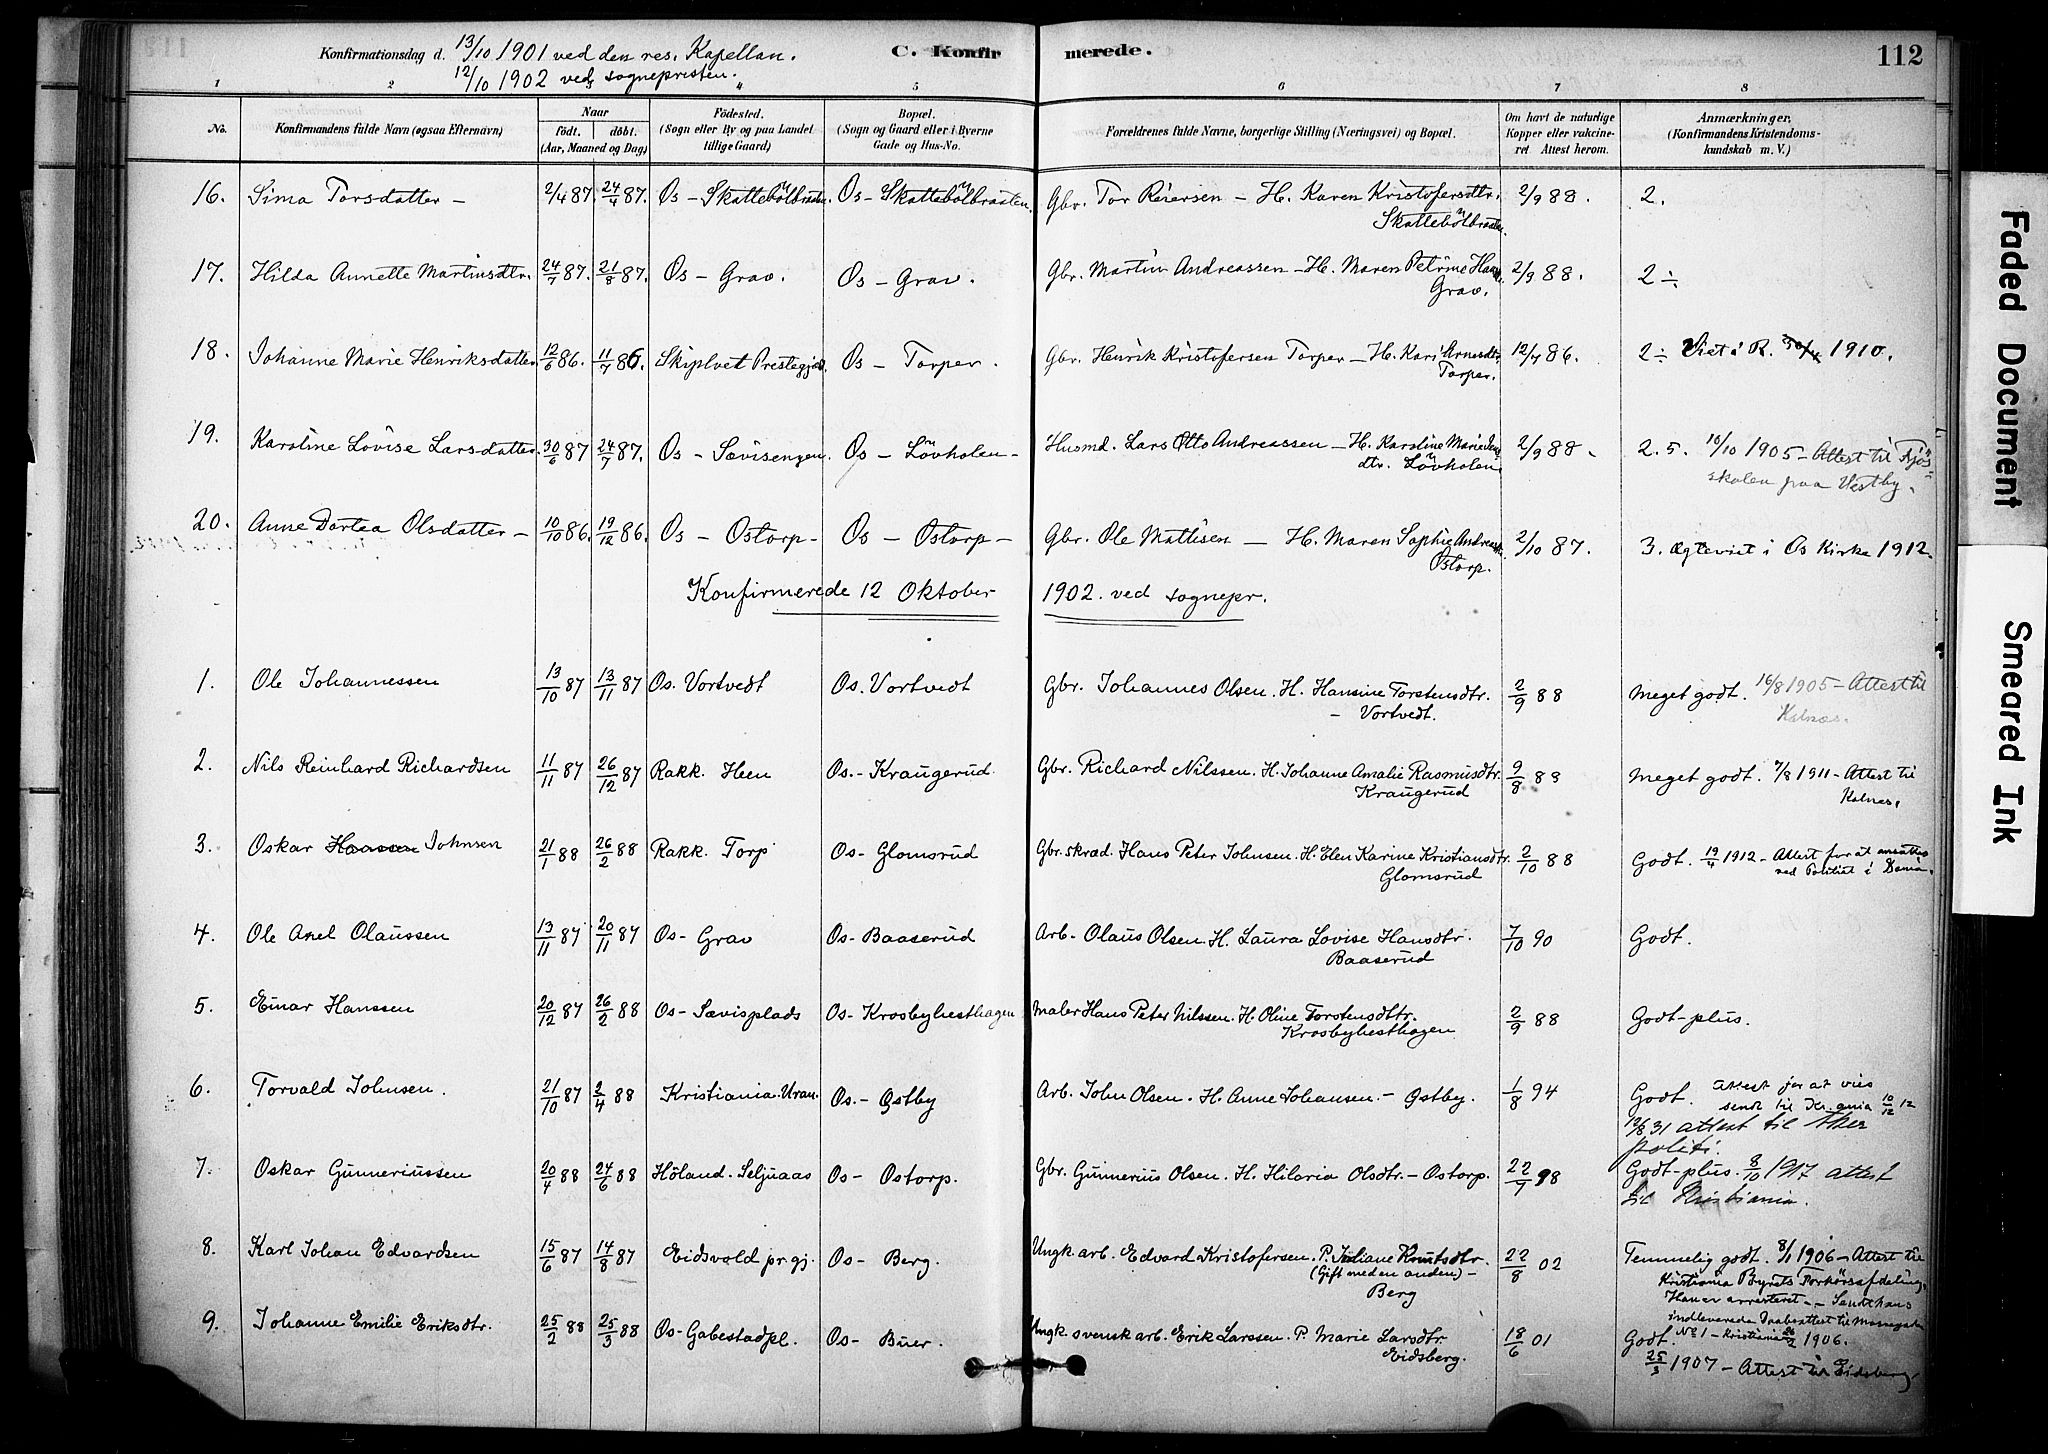 Konfirmationsdag d. 13/10 1901 ved den res. Kapellan.
12/10 1902 ved sognepresten.
C. Konfirmerede.
112
1 2 4 6 7 8
No. Konfirmandens fulde Navn (ogsaa Efternavn) Naar født. døbt. (Aar, Maaned og Dag) Fødested. (Sogn eller By og paa Landet tillige Gaard) Bopæl. (Sogn og Gaard eller i Byerne Gade og Hus-No. Forældrenes fulde Navne, borgerlige Stilling (Næringsvei) og Bopæl. Om havt de naturlige Kopper eller vakcineret Attest herom. Anmærkninger. (Konfirmandens Kristendomskundskab m. V.)
16. Sima Torsdatter - 2/4 87. 24/4 87. Os - Skattebölbraaten. Os - Skattebölbraaten. Gbr. Tor Reiersen - H. Karen Kristofersdtr. 2/9 88. 2.
Skattebölbraaten.
17. Hilda Annette Martinsdtr. 24/7 87. 21/8 87. Os - Grav. Os - Grav. Gbr. Martin Andreassen - H. Maren Petrine 2/9 88. 2 ÷
Grav.
18. Johanne Marie Henriksdatter 12/6 86. 11/7 86. Skiptvet Prestegjd. Os - Torper. Gbr. Henrik Kristofersen Torper - H. Kari Arnesdtr. 12/7 86. 2 ÷ Viet i R. 1910.
Torper.
19. Karoline Lovise Larsdatter. 30/6 87 24/7 87. Os - Sævisengen. Os - Lövholen - Husmd. Lars Otto Andreassen - H. Karoline Marie 2/9 88. 2.5. 10/10 1905 - Attest til Fjös-
dtr. Lövholen skolen paa Vestby.
20. Anne Dortea Olsdatter - 10/10 86. 19/12 86. Os - Ostorp - Os - Ostorp - Gbr. Ole Mattisen - H. Maren Sophie Andreasd. 2/10 87. 3. Ægteviet i Os Kirke 1912.
Ostorp.
Konfirmerede 12 Oktober 1902. ved sognepr.
1. Ole Johannessen 13/10 87 13/11 87 Os. Vortvedt Os. Vortvedt Gbr. Johannes Olsen. H. Hansine Torstensdtr. 2/9 88 Meget godt. 16/8 1905 - Attest til
- Vortvedt. Kalnæs.
2. Nils Reinhard Richardsen 11/11 87 26/12 87 Rakk. Heen Os. - Kraugerud. Gbr. Richard Nilssen. H. Johanne Amalie Rasmusdtr. 9/8 88 Meget godt. 7/8 1911 - Attest til
Kraugerud Kalnes.
3. Oskar Hanssen Johnsen 21/1 88 26/2 88 Rakk. Torp Os - Glomsrud Gbr. skræd. Hans Peter Johnsen. H. Elen Karine Kristiansdtr. 2/10 88 Godt. 19/4 1912 - Attest for at ansættes
Glomsrud ved Politiet i
4. Ole Axel Olaussen 13/11 87 20/11 87 Os - Grav Os - Baaserud Arb. Olaus Olsen. H. Laura Lovise Hansdtr. 7/10 90 Godt.
Baaserud
5. Einar Hanssen 20/12 87 26/2 88 Os - Sævisplads Os - Krosbyhesthagen Maler Hans Peter Nilssen. H. Oline Torstensdtr. 2/9 88 Godt-plus.
Krosbyhesthagen
6. Torvald Johnsen. 21/10 87 2/4 88 Kristiania. Uran. Os. - Østby Arb. John Olsen. H. Anne Johansen. - Østby. 1/8 94 Godt. Attest for at vies
sendt til Kr.ania 10/12 12
12/8 31 attest til Aker
politi.
7. Oskar Gunneriussen 20/4 88 24/6 88 Höland. Seljuaas Os - Ostorp. Gbr. Gunnerius Olsen. H. Hilaria Olsdtr. - Ostorp. 22/7 98 Godt-plus. 8/10 1917 attest
til Kristiania.
8. Karl Johan Edvardsen 15/6 87 14/8 87 Eidsvold pr.gj. Os - Berg. Ungk. arb. Edvard Kristofersen. P. Juliane Knutsdtr. 22/8 02 Temmelig godt. 8/1 1906 - Attest til
(Gift med en anden) - Kristiania Byrets Forhörsafdeling.
Berg Han er arresteret - Sendt hans
indleverede Daabsattest til
No 1 - Kristiania 1906.
9. Johanne Emilie Eriksdtr. 25/2 88 25/3 88 Os - Gabestadpl. Os - Buer. Ungk. svensk arb. Erik Larssen. P. Marie Larsdtr. 18/6 01 Godt.
Eidsberg. 25/3 1907 - Attest til Eidsberg
Faded Document
Smeared Ink